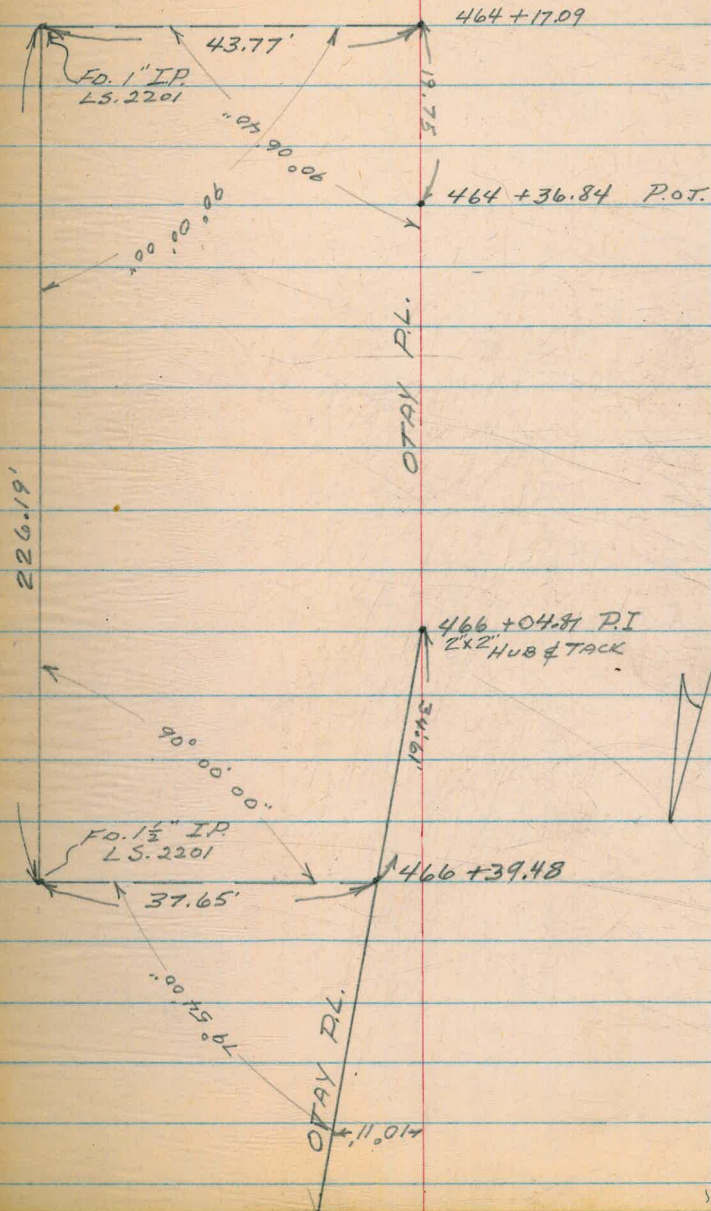 464 +17.09
43.77'
FD. 1" I.P.
LS. 2201
19.75
90° 06' 40"
464 +36.84 P.O.T.
90° 00' 00"
OTAY P.L.
226.19'
466 +04.87 P.I
2"x2" HUB & TACK
34.61'
90° 00' 00"
FD. 1½" I.P.
LS. 2201
466 +39.48
37.65'
79° 54' 00"
OTAY P.L.
10° 11'